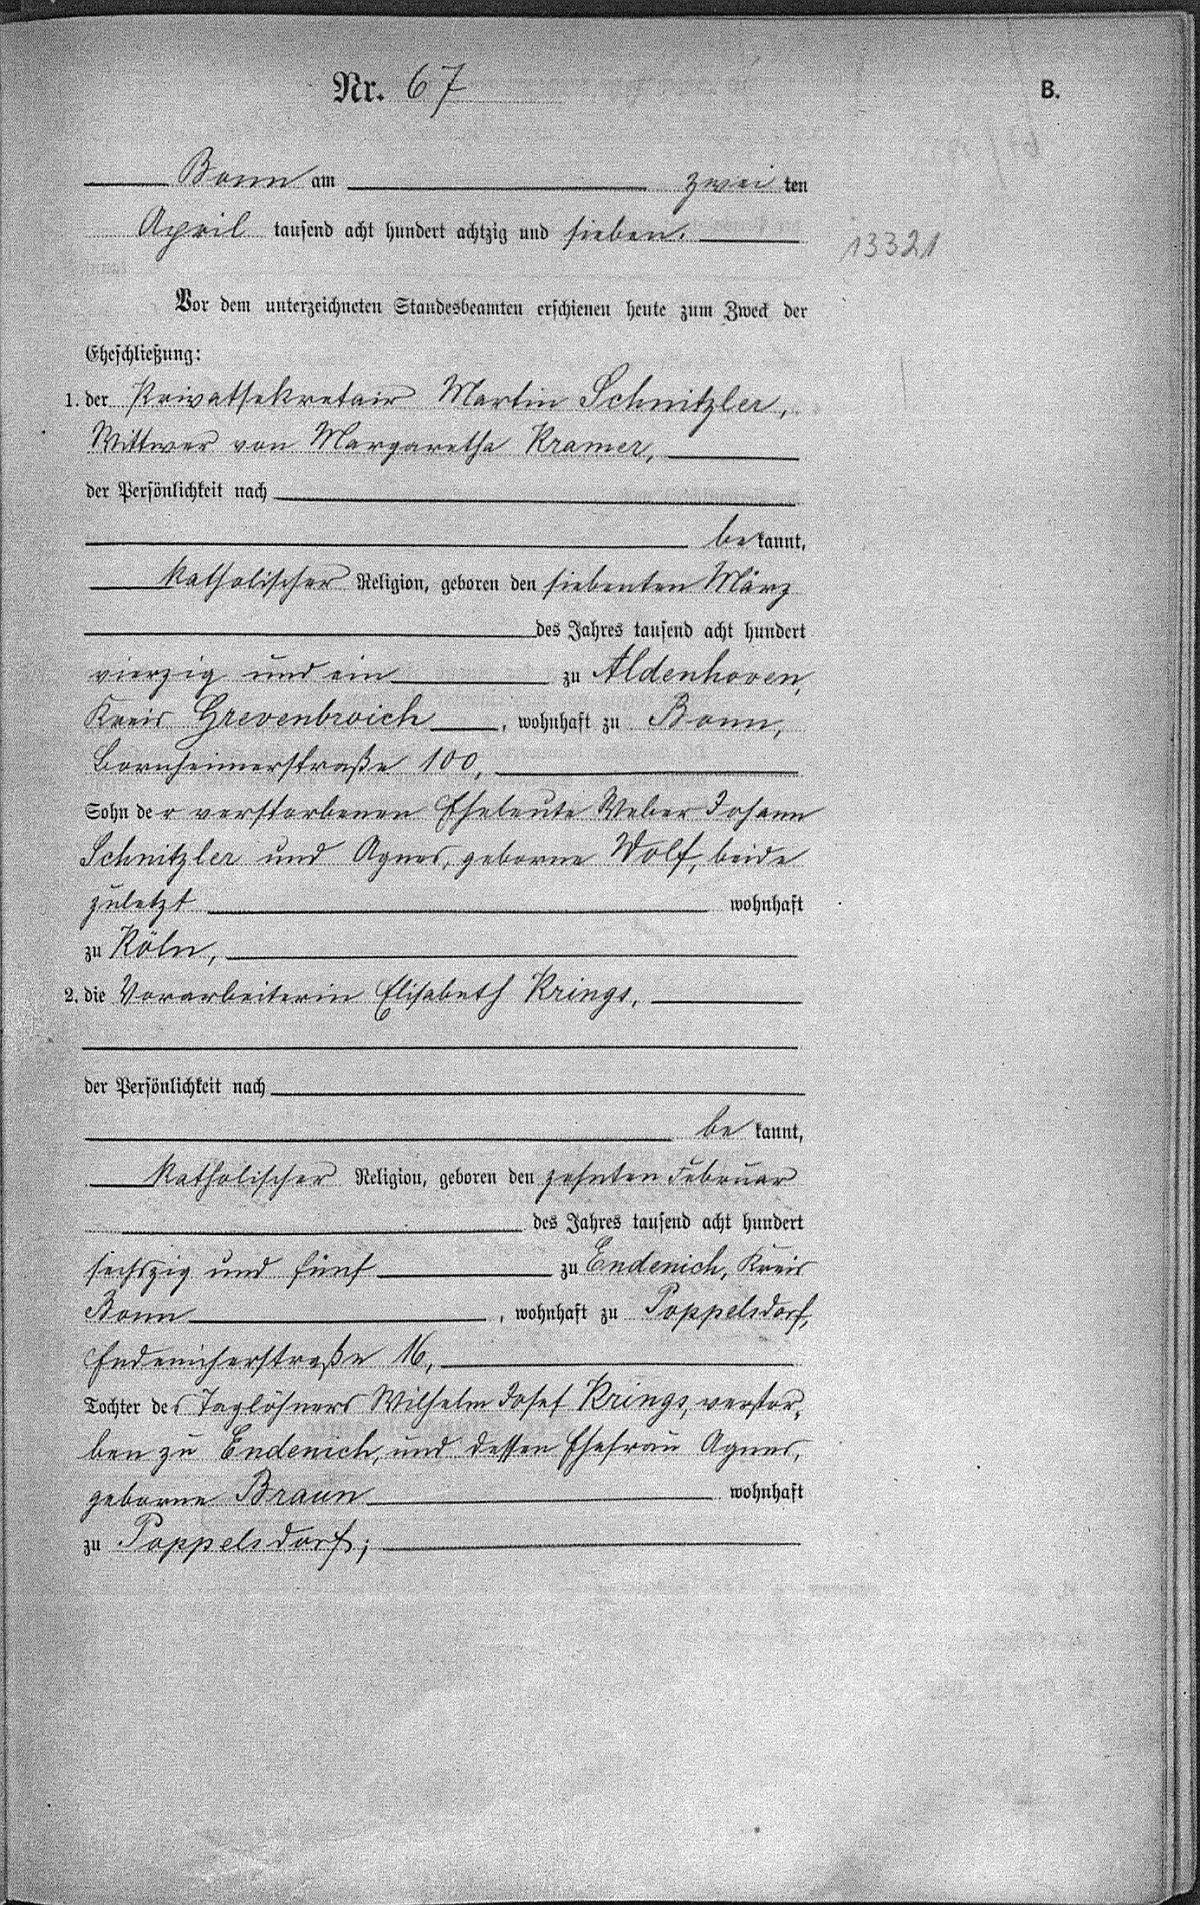 Nr. 67
B.
Bonn am zwei ten
April tausend acht hundert achtzig und sieben.
13321
Vor dem unterzeichneten Standesbeamten erschienen heute zum Zweck der
Eheschließung:
1. der Privatsekretair Martin Schnitzler,
Wittwer von Margaretha Kramer,
der Persönlichkeit nach
be kannt,
katholischer Religion, geboren den siebenten März
des Jahres tausend acht hundert
vierzig und ein zu Aldenhoven,
Kreis Grevenbroich, wohnhaft zu Bonn,
Bornheimerstraße 100,
Sohn der verstorbenen Eheleute Weber Johann
Schnitzler und Agnes, geborne Wolf, beide
zuletzt wohnhaft
zu Köln,
2. die Vorarbeiterin Elisabeth Krings,
der Persönlichkeit nach
be kannt,
katholischer Religion, geboren den zehnten Februar
des Jahres tausend acht hundert
sechszig und fünf zu Endenich, Kreis
Bonn, wohnhaft zu Poppelsdorf,
Endenicherstraße 16,
Tochter des Taglöhners Wilhelm Josef Krings, verstor-
ben zu Endenich, und dessen Ehefrau Agnes,
geborne Braun wohnhaft
zu Poppelsdorf;